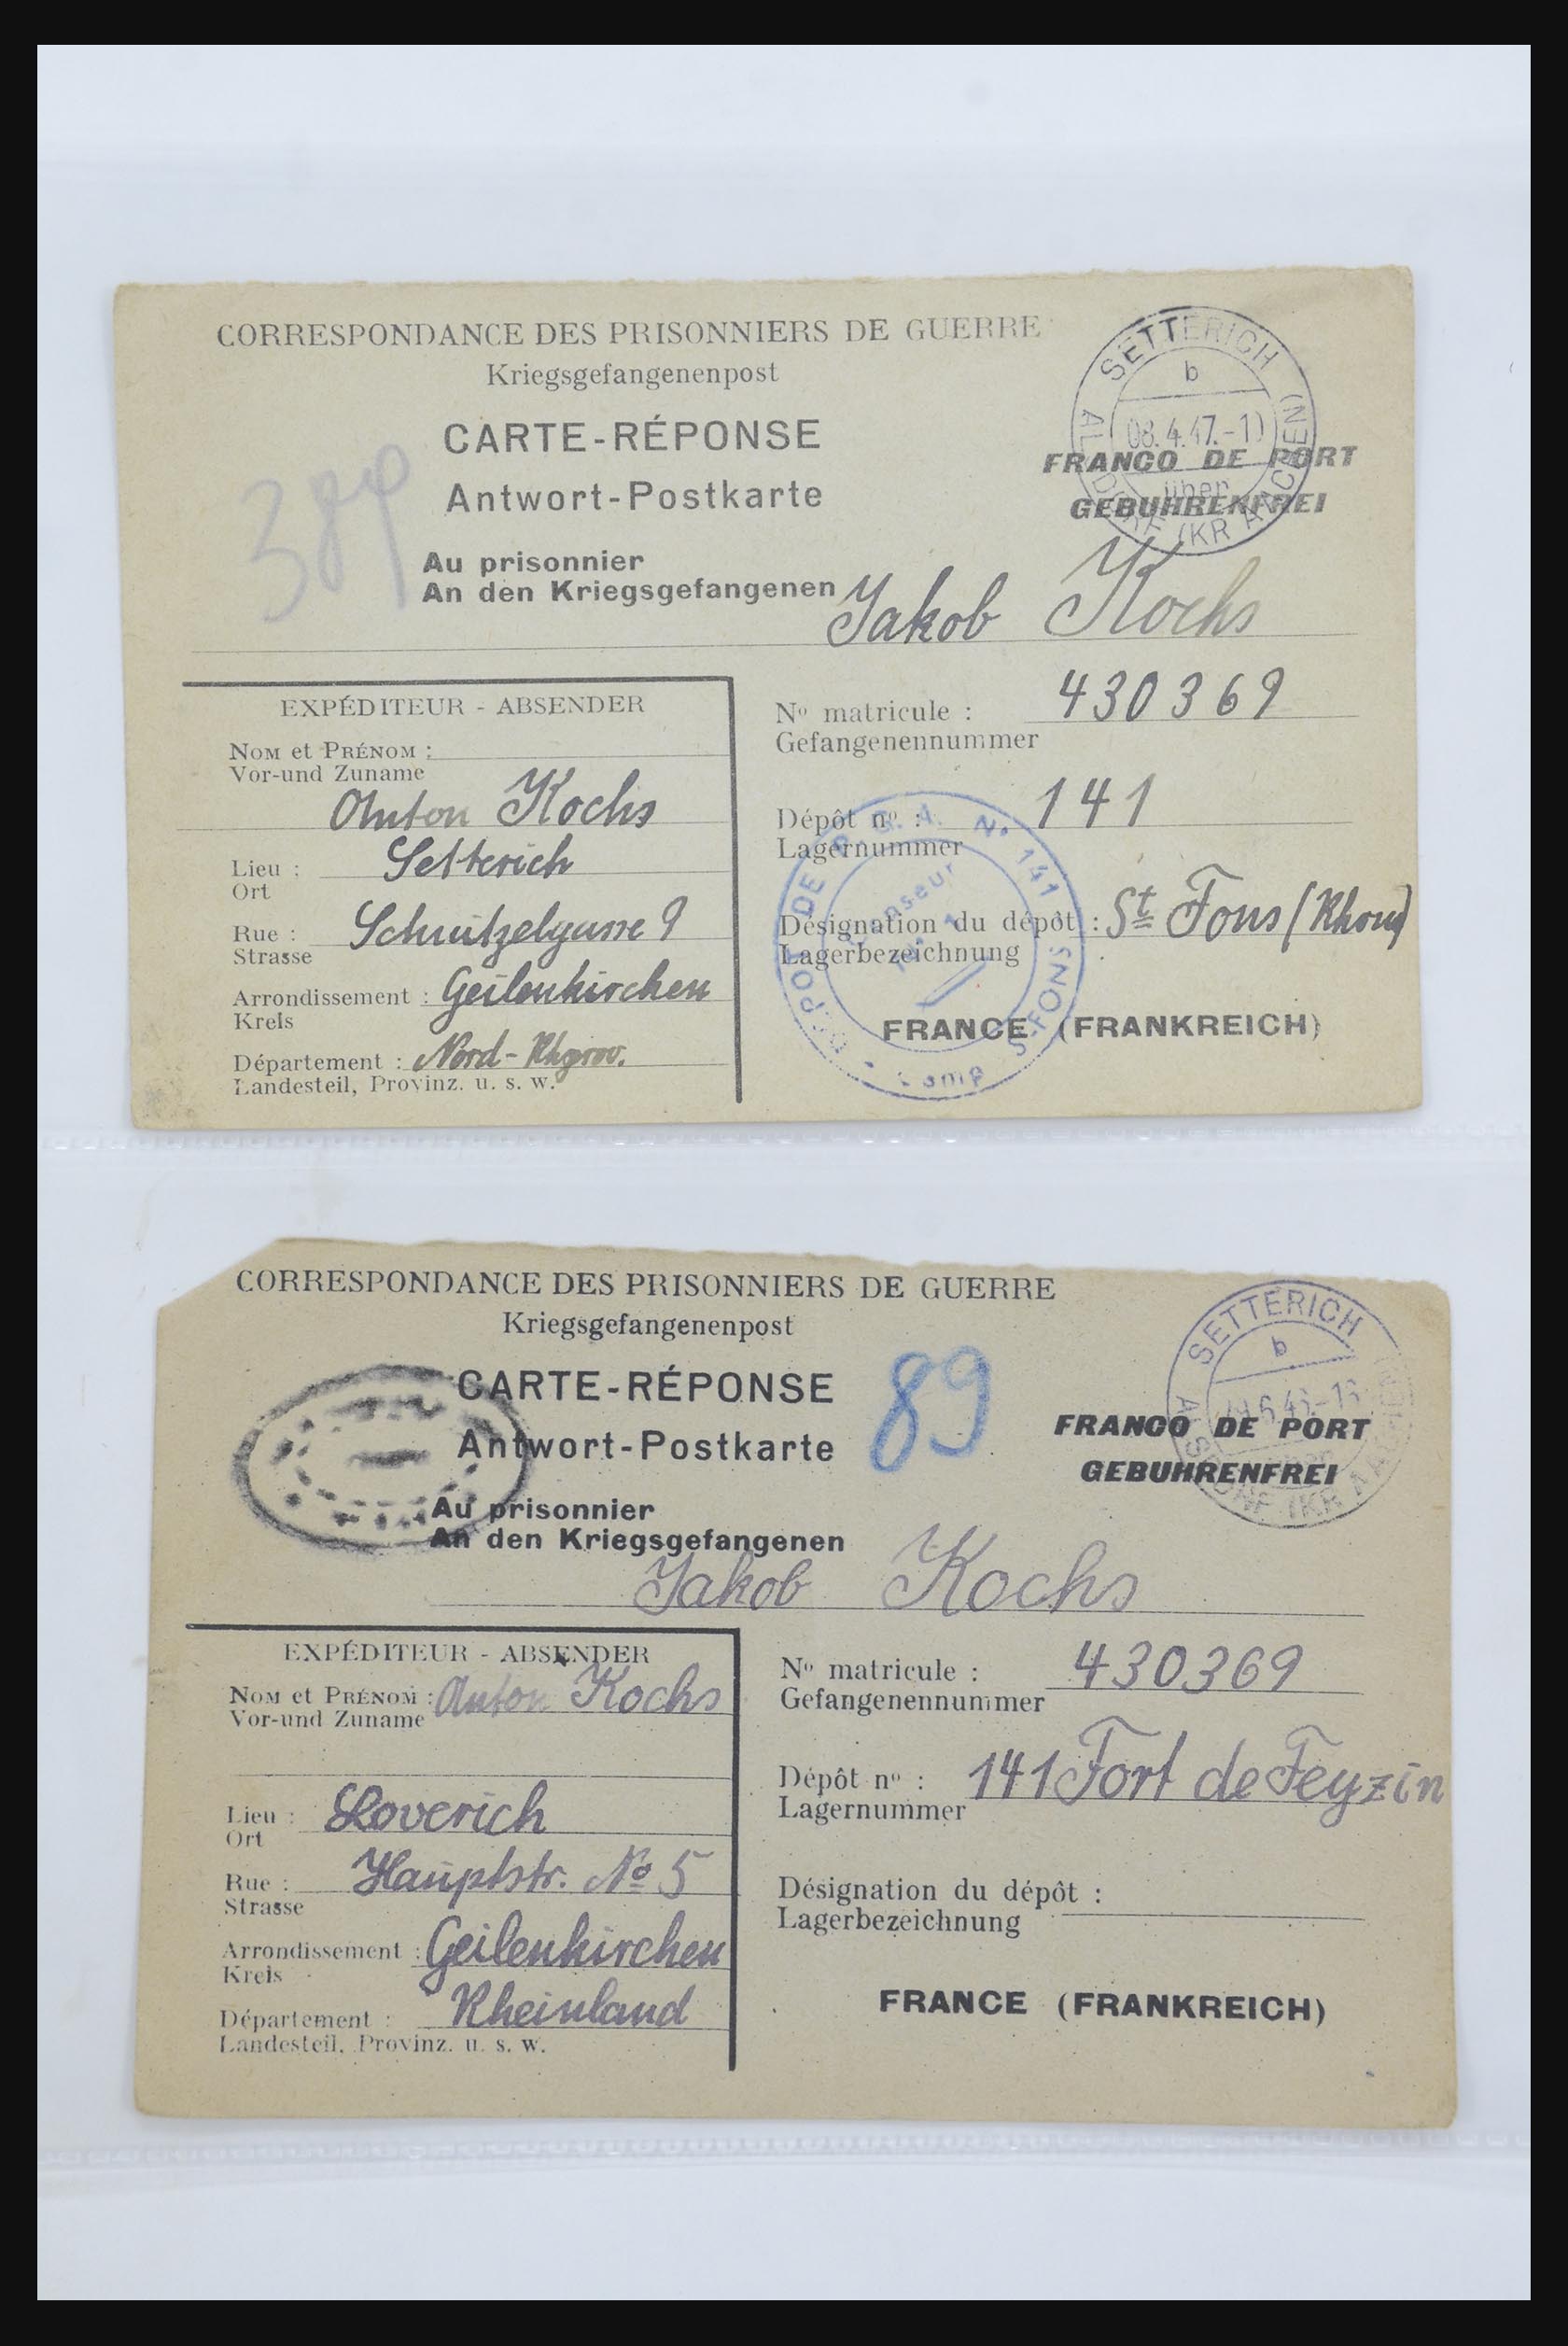 CORRESPONDANCE DES PRISONNIERS DE GUERRE
Kriegsgefangenenpost
CARTE-RÉPONSE
Antwort-Postkarte
SETTERICH
b
08.4.47.-1
über
(KR AACHEN)
FRANCO DE PORT
GEBUHRENFREI
Au prisonnier
An den Kriegsgefangenen Jakob Kochs
EXPÉDITEUR - ABSENDER
Nom et Prénom :
Vor-und Zuname
Anton Kochs
Lieu : Setterich
Ort
Rue : Schnitzelgasse 9
Strasse
Arrondissement : Geilenkirchen
Kreis
Département : Nord-Rhprov.
Landesteil, Provinz. u. s. w.
No matricule : 430369
Gefangenennummer
Dépôt no : 141
Lagernummer
Désignation du dépôt : St Fons (Rhone)
Lagerbezeichnung
FRANCE (FRANKREICH)
No 141
Censeur
Camp
CORRESPONDANCE DES PRISONNIERS DE GUERRE
Kriegsgefangenenpost
CARTE-RÉPONSE
Antwort-Postkarte
89
SETTERICH
b
FRANCO DE PORT
GEBUHRENFREI
Au prisonnier
An den Kriegsgefangenen
Jakob Kochs
EXPÉDITEUR - ABSENDER
Nom et Prénom : Anton Kochs
Vor-und Zuname
Lieu : Loverich
Ort
Rue : Hauptstr. No 5
Strasse
Arrondissement : Geilenkirchen
Kreis
Département : Rheinland
Landesteil, Provinz. u. s. w.
No matricule : 430369
Gefangenennummer
Dépôt no : 141 Fort de Feyzin
Lagernummer
Désignation du dépôt :
Lagerbezeichnung
FRANCE (FRANKREICH)